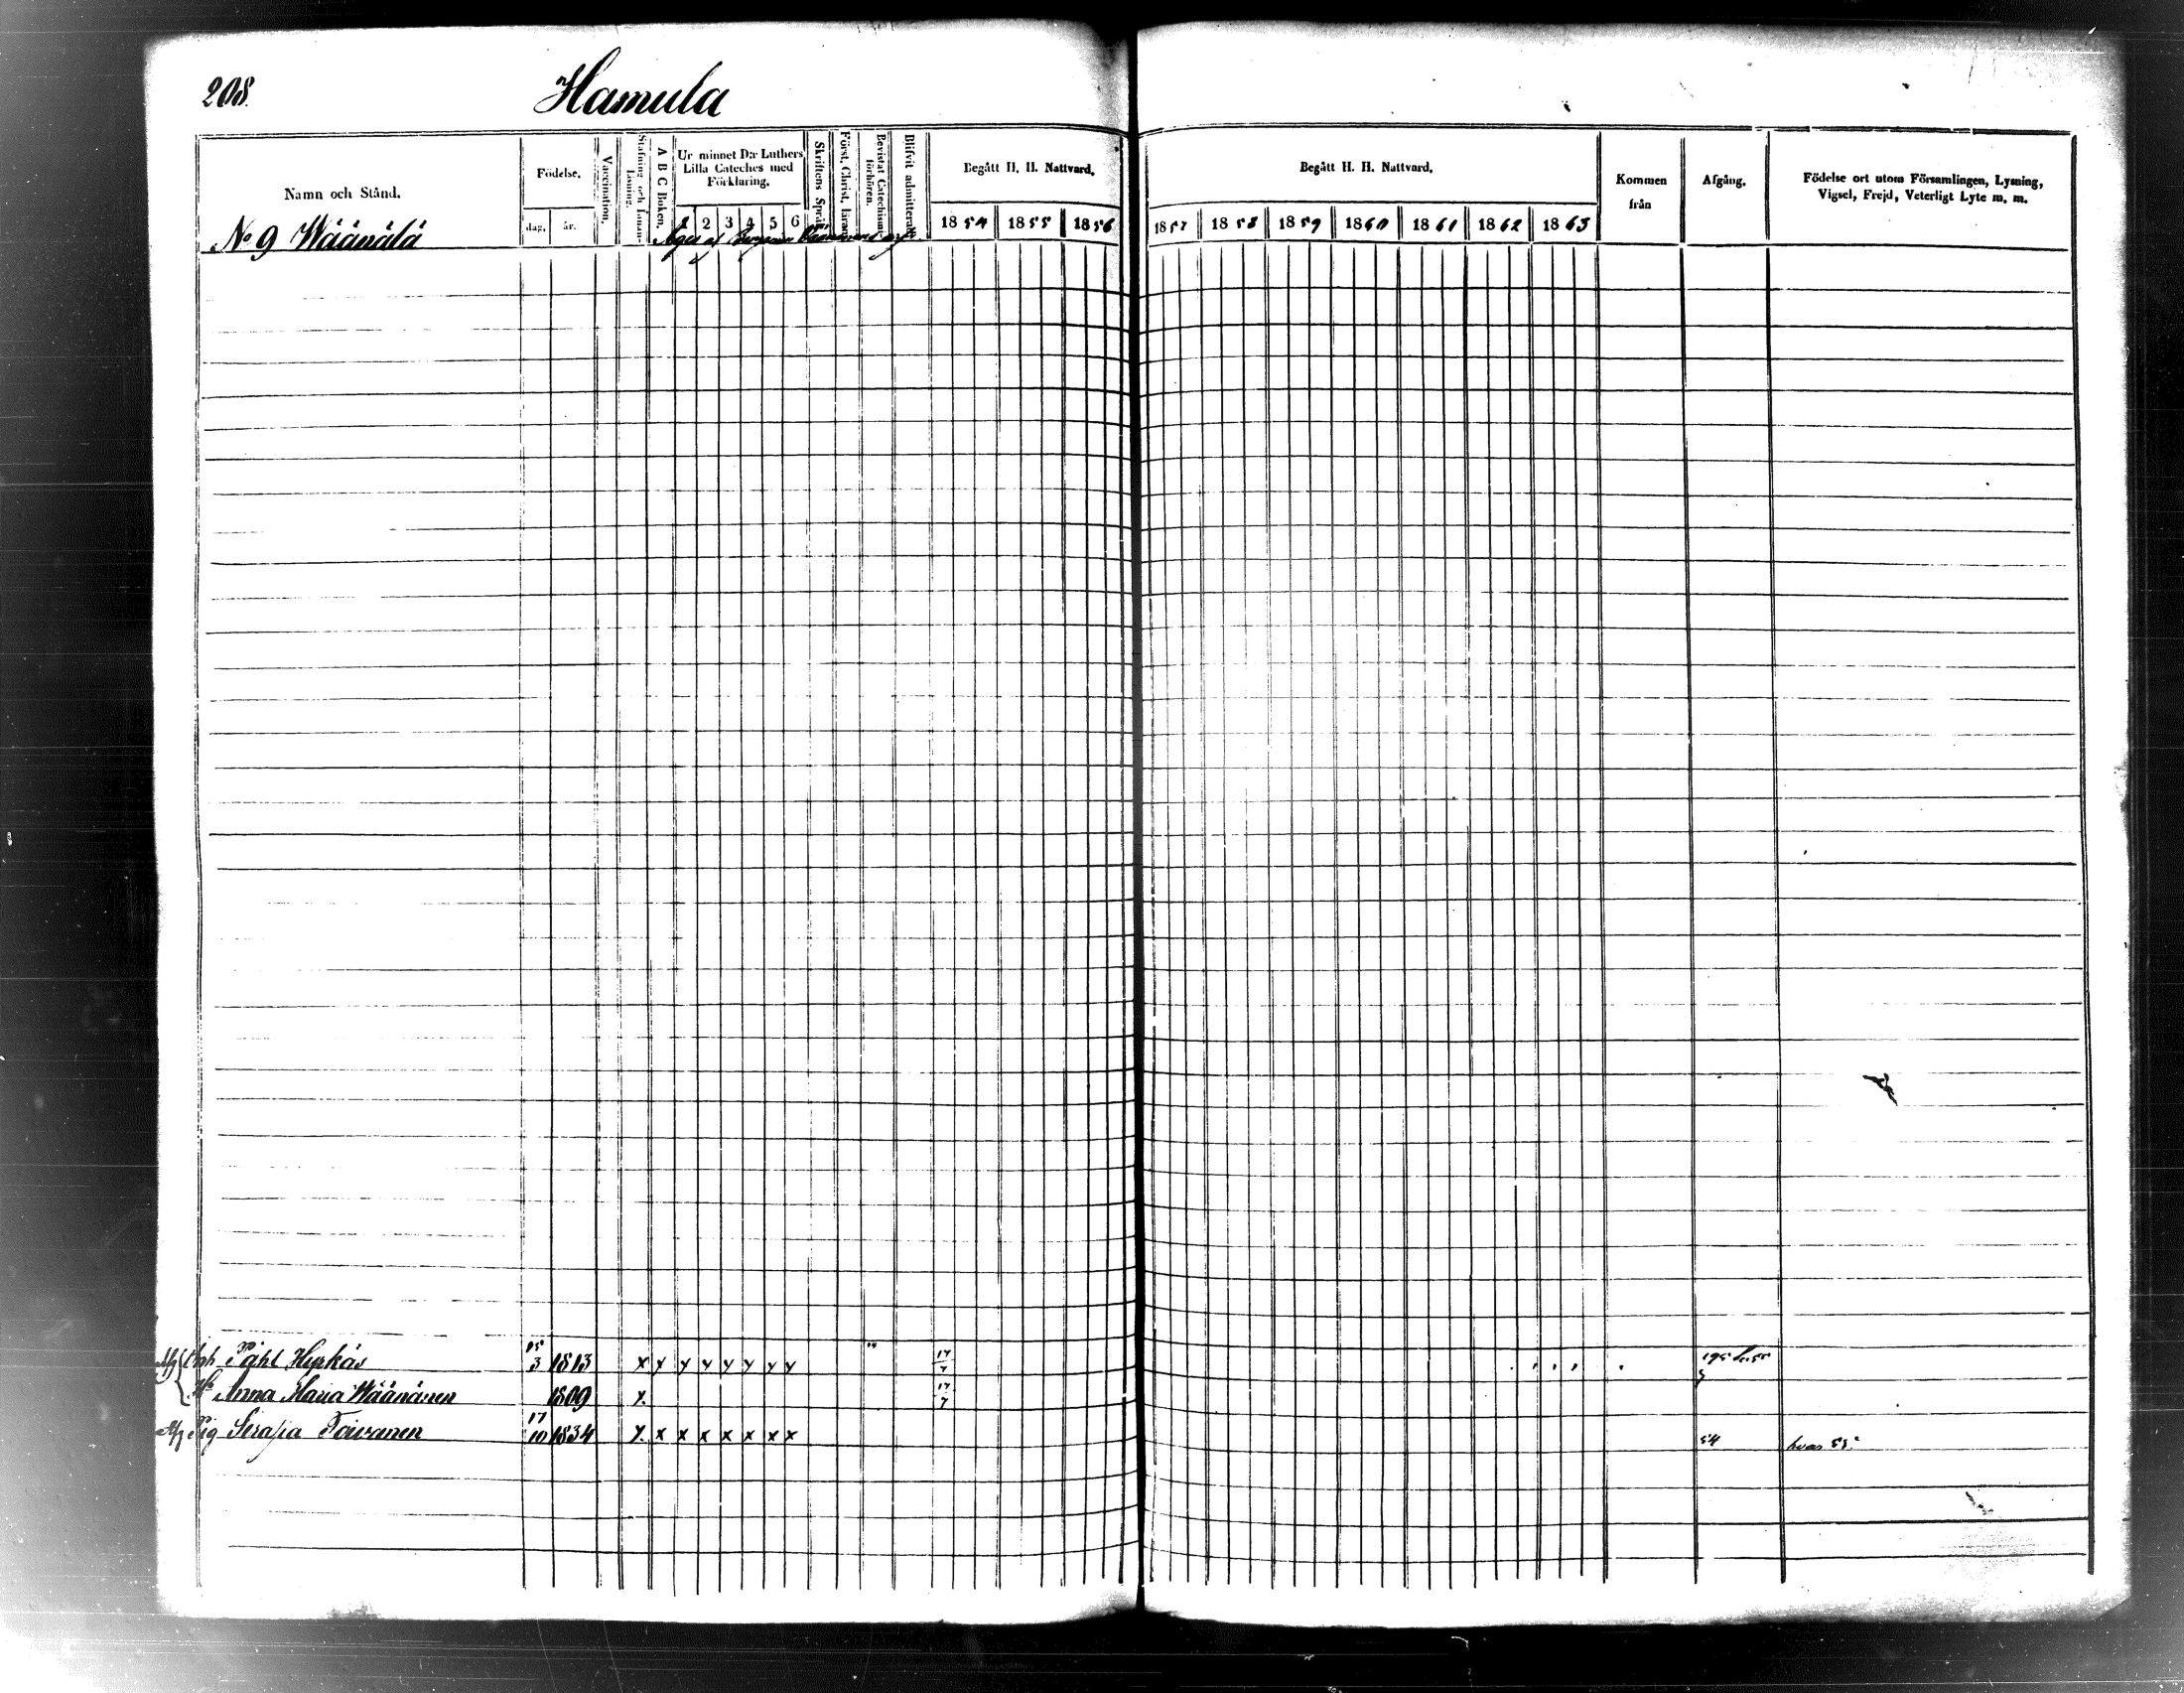 208.
Hamula
Namn och Stånd.
Födelse.
dag. år.
Vaccination.
Stafning och Innanläsning.
A B C Boken.
Ur minnet D:r Luthers Lilla Cateches med Förklaring.
1 2 3 4 5 6
Skriftens Språk.
Först. Christ. lära.
Bevistat Catechismi förhören.
Blifvit admitterad.
Begått H. H. Nattvard.
1854 1855 1856
Begått H. H. Nattvard.
1857 1858 1859 1860 1861 1862 1863
Kommen från
Afgång.
Födelse ort utom Församlingen, Lysning, Vigsel, Frejd, Veterligt Lyte m. m.
No 9 Wäänälä
Äges af Benjamin Väänänens arf.
Påhl Hyrkäs 3 1813 x y y y y y y y 17/7
Hu Anna Maria Wäänänen 1809 x. 17/7
Pig Serafia Toivanen 17/10 1834 x x x x x x x x 54